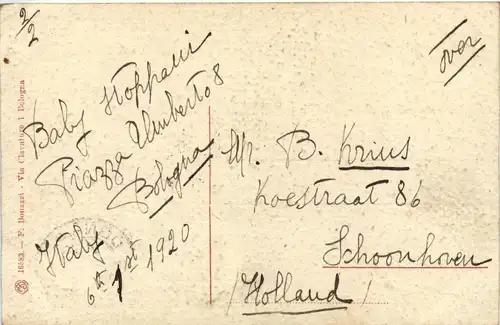 2/2
over
Baby Stoppani
Piazza Umberto 8
Bologna
Italy
6th 1st 1920
Mr. B. Krius
Koestraat 86
Schoonhoven
/Holland/
16583 - F. Bonazzi - Via Clavature 1 Bologna